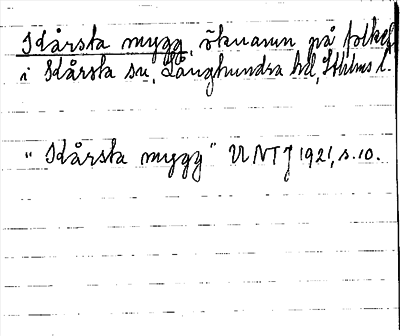 Kårsta mygg, öknamn på folket
i Kårsta sn, Långhundra hd, Sthlms l.
"Kårsta mygg" UNTJ 1921, s. 10.